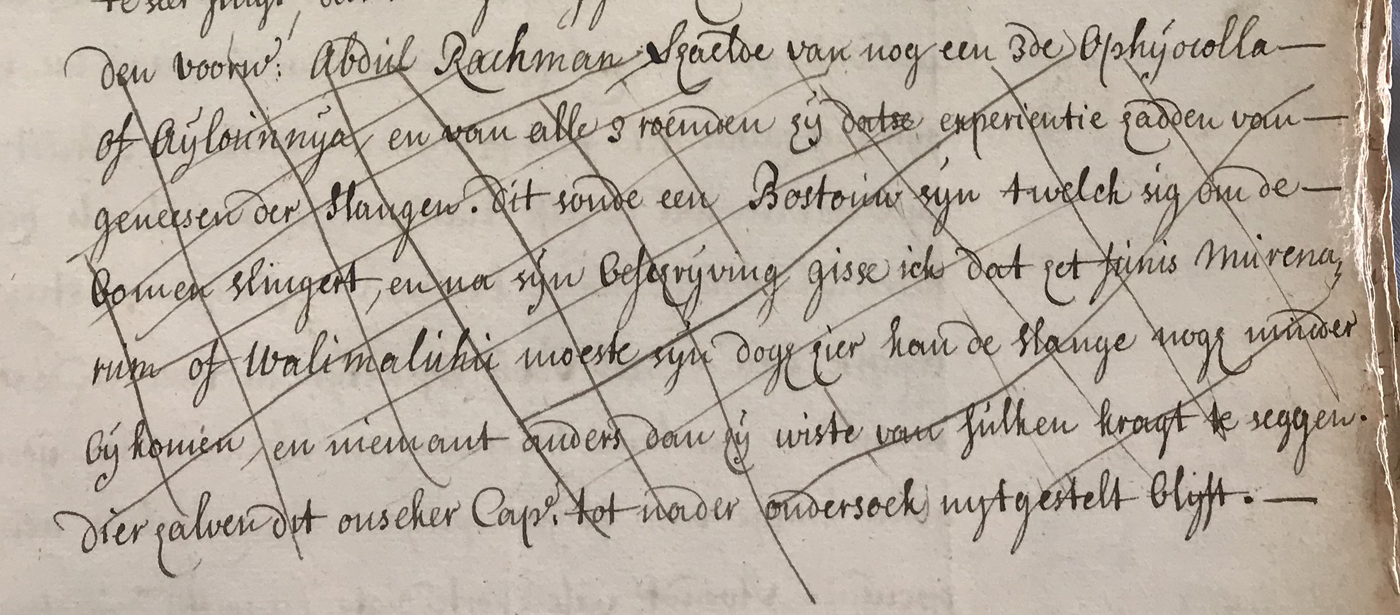 den voorn: Abdul Rachman Haelde van nog een 3de Ophÿocolla
of Aÿlounnÿa, en van alle 3 roemden hÿ datse experientie hadden van
geneesen der slangen. dit soude een Bostouw sÿn twelch sig om de
bomen slingert, en na sÿn beschrÿving gisse ick dat het funis Murena,
rum of Walimaluhu moeste sÿn dogh hier kan de slange nogh minder
bÿ komen, en niemant anders dan hÿ wiste van sulken kragt te seggen.
dier halven dit onseker Cap: tot nader ondersoek uÿtgestelt blÿft.